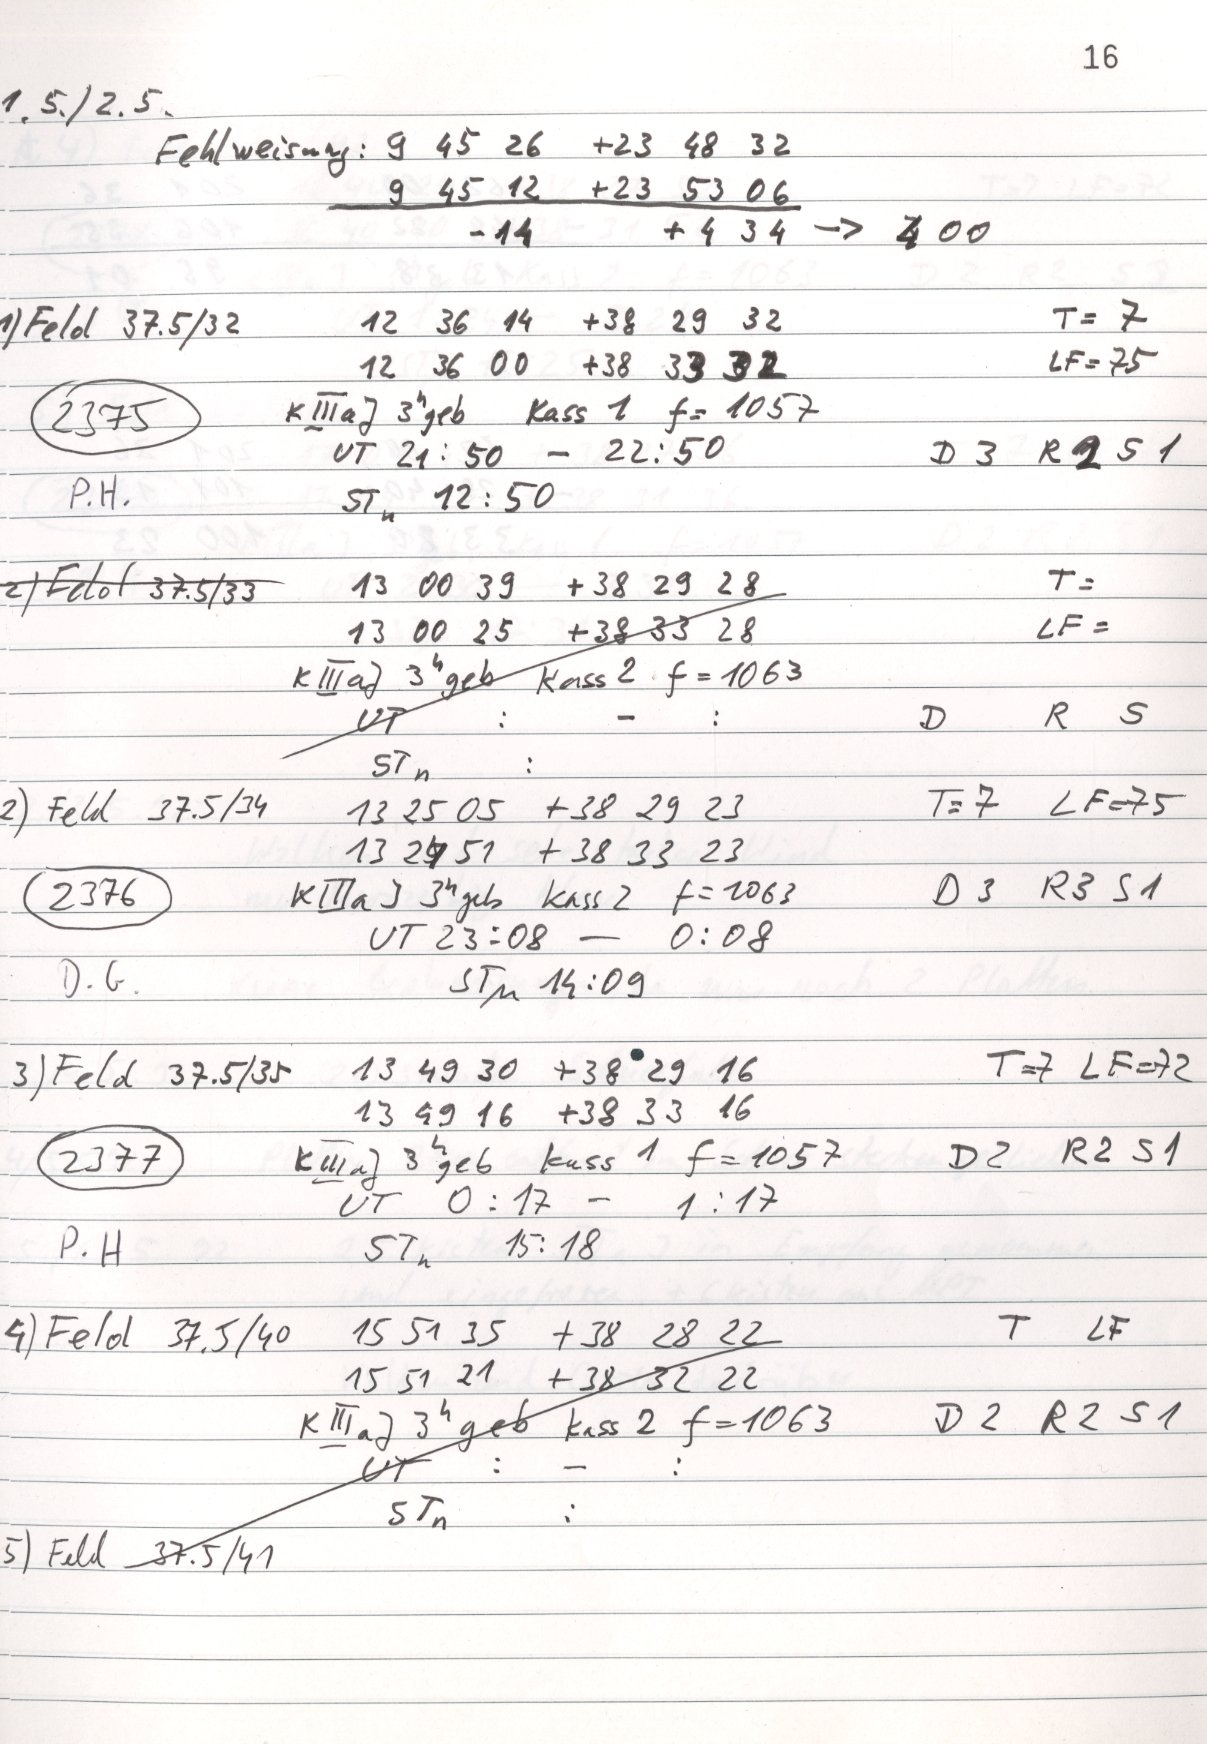 16
1.5./2.5.
Fehlweisung: 9 45 26 +23 48 32
9 45 12 +23 53 06
-14 +4 34 -> 4 00
1) Feld 37.5/32 12 36 14 +38 29 32 T= 7
12 36 00 +38 33 32 LF=75
2375 KIIIaJ 3h geb Kass 1 f=1057
UT 21:50 - 22:50 D 3 R 2 S 1
P.H. STn 12:50
2) Feld 37.5/33 13 00 39 +38 29 28 T=
13 00 25 +38 33 28 LF=
KIIIaJ 3h geb Kass 2 f=1063
UT : - : D R S
STn :
2) Feld 37.5/34 13 25 05 +38 29 23 T=7 LF=75
13 24 51 +38 33 23
2376 KIIIaJ 3h geb Kass 2 f=1063 D 3 R3 S1
UT 23:08 - 0:08
D.G. STn 14:09
3) Feld 37.5/35 13 49 30 +38 29 16 T=7 LF=72
13 49 16 +38 33 16
2377 KIIIaJ 3h geb Kass 1 f=1057 D2 R2 S1
UT 0:17 - 1:17
P.H STn 15:18
4) Feld 37.5/40 15 51 35 +38 28 22 T LF
15 51 21 +38 32 22
KIIIaJ 3h geb Kass 2 f=1063 D 2 R2 S1
UT : - :
STn :
5) Feld 37.5/41